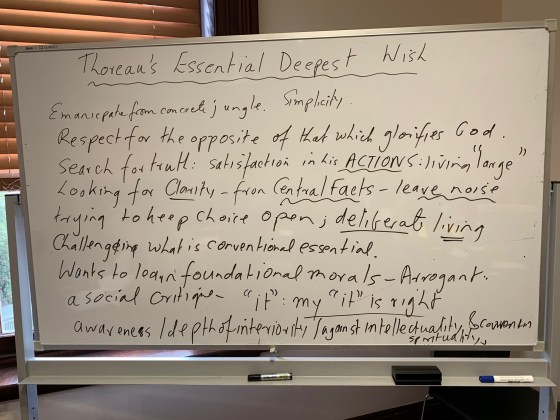 Thoreau's Essential Deepest Wish
Emanicpate from concrete jungle. Simplicity.
Respect for the opposite of that which glorifies God.
Search for truth: satisfaction in his ACTIONS: living "large"
Looking for Clarity - from Central Facts - leave noise
trying to keep choice open; deliberate living
Challenging what is conventional essential.
Wants to learn foundational morals - Arrogant.
a social critique - "it": my "it" is right
awareness / depth of interiority / against intellectuality, & convention
spirituality